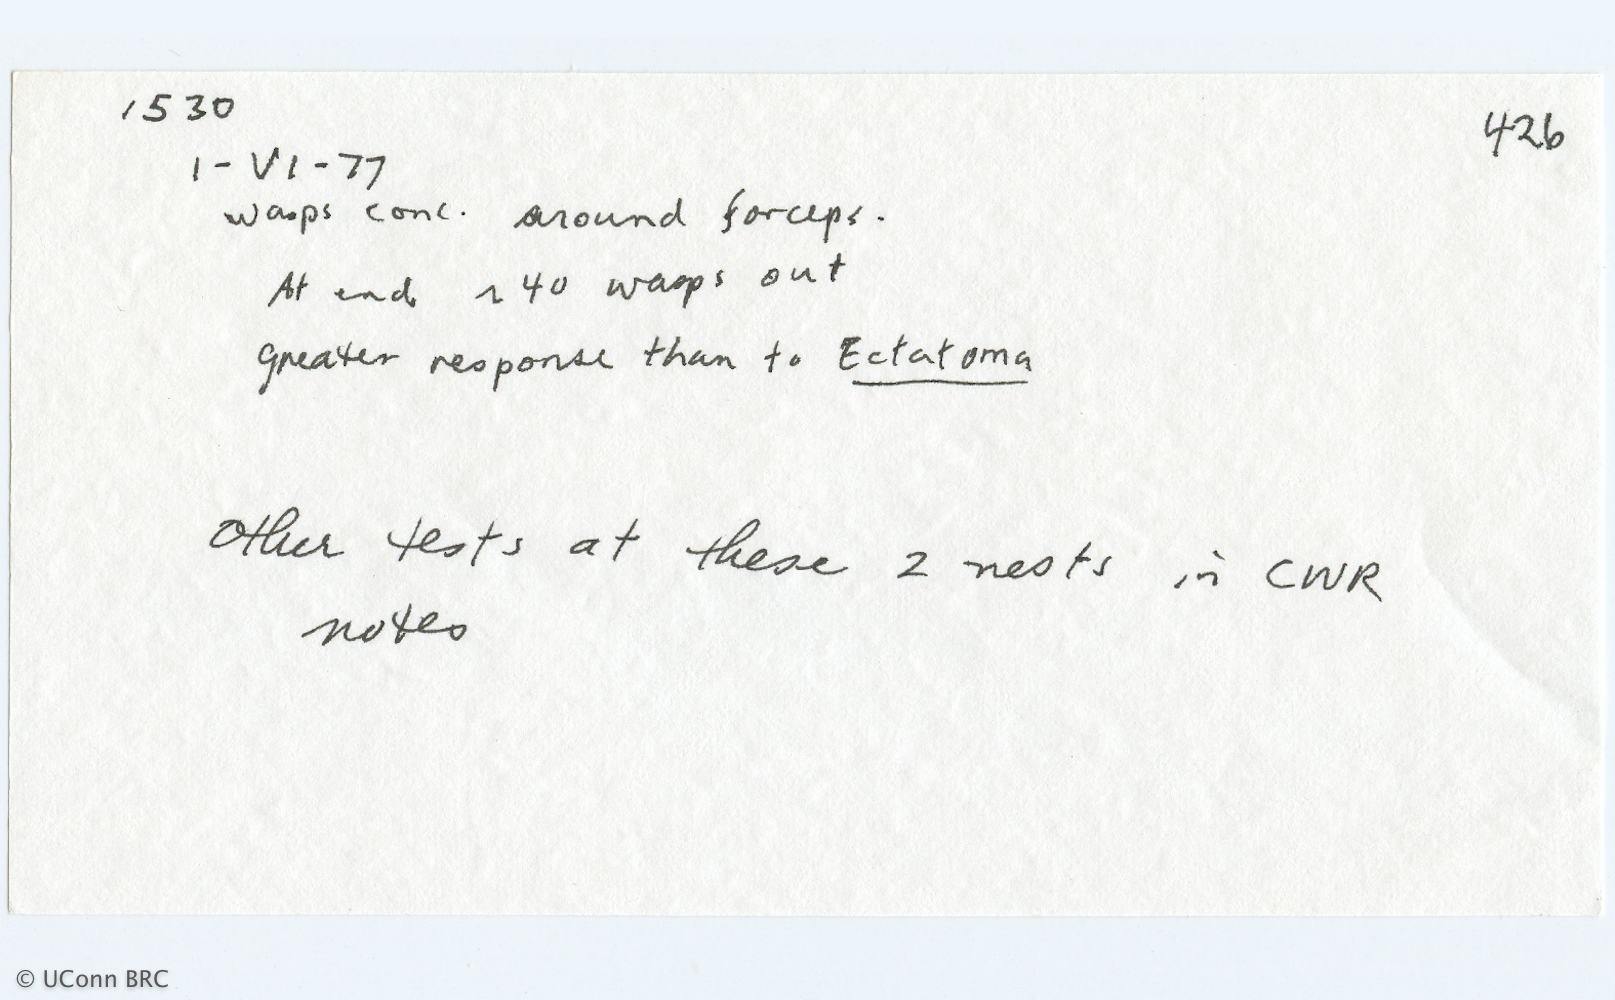 1530
426
1-VI-77
wasps conc. around forceps.
At end ~40 wasps out
greater response than to Ectatoma
Other tests at these 2 nests in CWR
notes
© UConn BRC